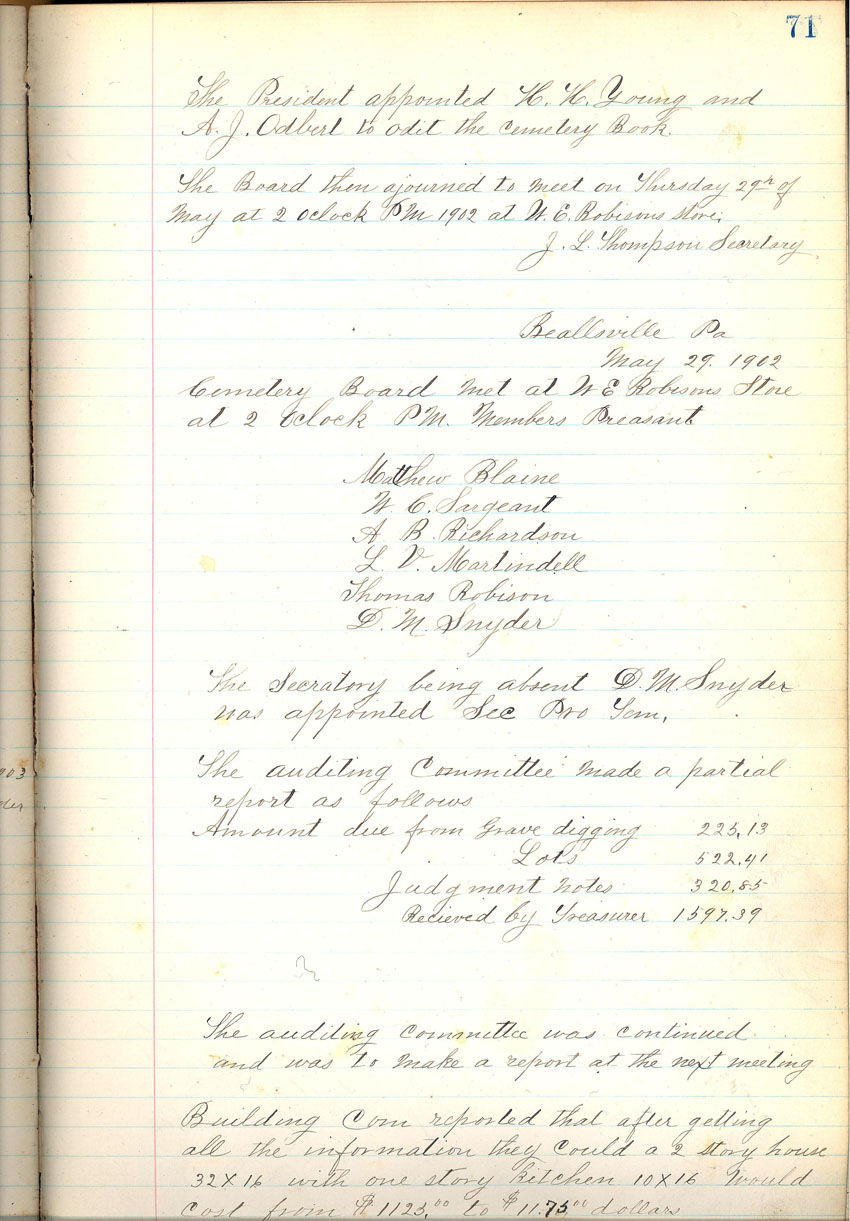 71
The President appointed H. H. Young and
A. J. Odbert to odit the cemetery Book.
The Board then ajourned to meet on Thursday 29th of
May at 2 oclock PM 1902 at W. E. Robisons store.
J. L. Thompson Secretary
Beallsville Pa
May 29. 1902
Cemetery Board met at W E Robisons Store
at 2 Oclock PM. Members Preasant
Mathew Blaine
W. C. Sargeant
A B. Richardson
L. V. Martindell
Thomas Robison
D. M. Snyder
The Secratory being absent D. M. Snyder
was appointed Sec Pro Tem.
The auditing Committee made a partial
903
report as follows
der
Amount due from Grave digging 225.13
Lots 522.41
Judgment notes 320.85
Recieved by Treasurer 1597.39
The auditing committee was continued
and was to make a report at the next meeting
Building Com reported that after getting
all the information they could a 2 story house
32X16 with one story kitchen 10X16 would
cost from $1125,00 to $1175,00 dollars